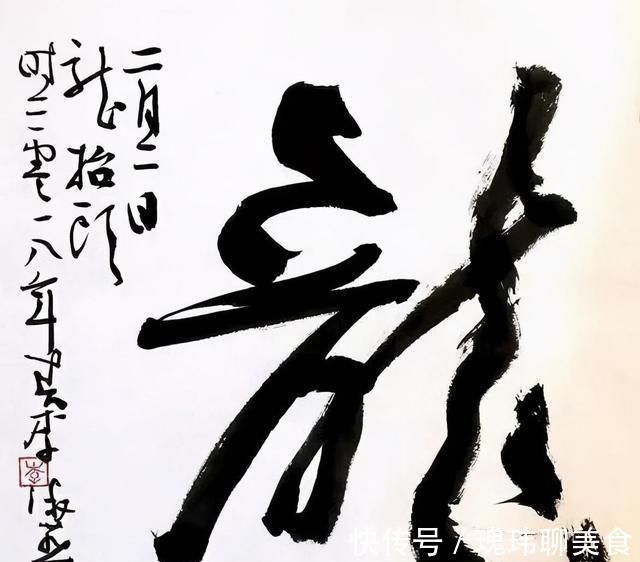 龍
二月二日
龍抬頭
时二零一八年
李
快传号 / 瑰玮聊美食